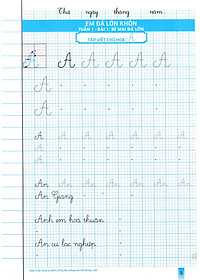 Thứ ngày tháng năm
EM ĐÃ LỚN KHÔN
TUẦN 1 : BÀI 1: BÉ MAI ĐÃ LỚN
TẬP VIẾT CHỮ HOA: A
A A A A A A
A
A
A A A A A A
An An An An An An
An Giang
Anh em hòa thuận
An cư lạc nghiệp